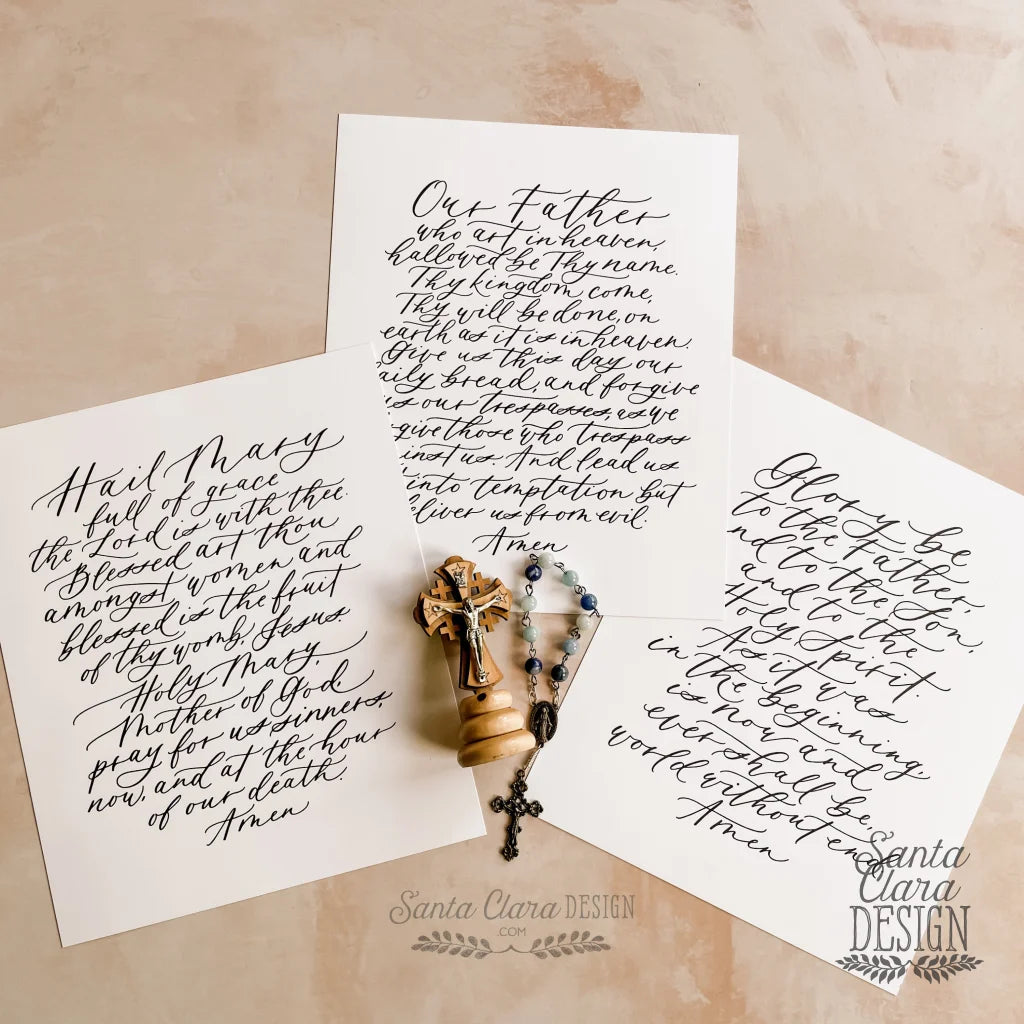 Our Father
who art in heaven,
hallowed be Thy name.
Thy kingdom come,
Thy will be done, on
earth as it is in heaven.
Give us this day our
aily bread, and forgive
s our trespasses, as we
give those who trespass
inst us. And lead us
into temptation but
eliver us from evil.
Amen
Hail Mary
full of grace
the Lord is with thee.
Blessed art thou
amongst women and
blessed is the fruit
of thy womb, Jesus.
Holy Mary,
Mother of God,
pray for us sinners,
now, and at the hour
of our death.
Amen
Glory be
to the Father,
nd to the Son,
and to the
Holy Spirit.
As it was
in the beginning,
is now and
ever shall be,
world without end
Amen
Santa Clara DESIGN
.COM
Santa
Clara
DESIGN